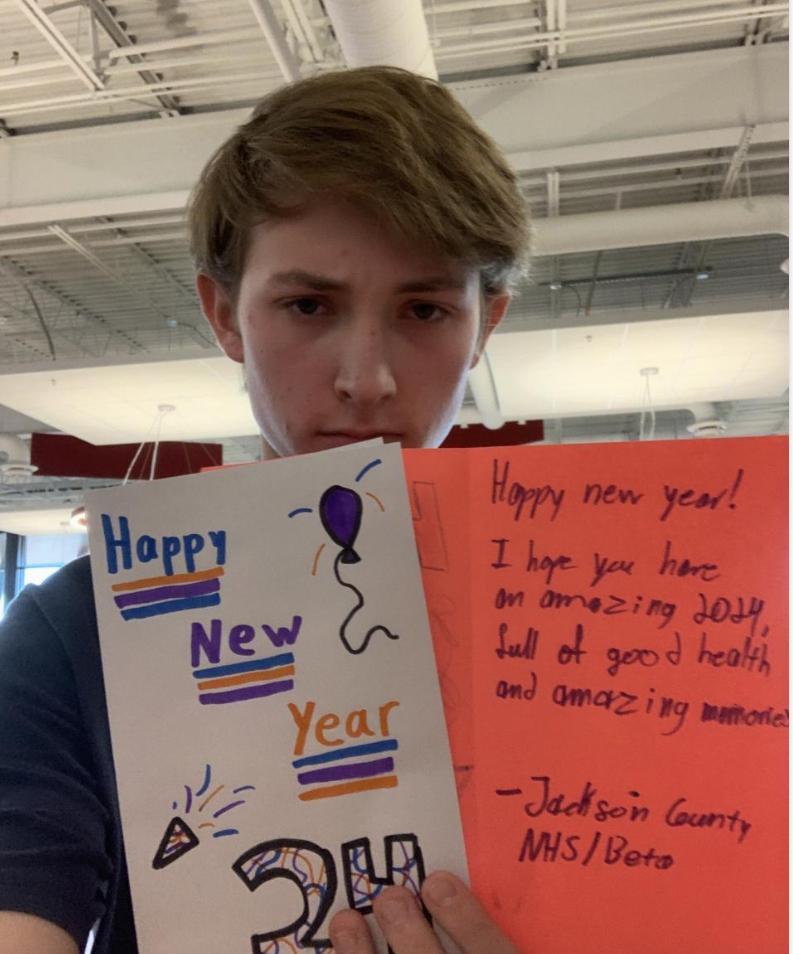 Happy
New
Year
24
Happy new year!
I hope you have
an amazing 2024,
full of good health
and amazing memories
-Jackson County
NHS/Beta